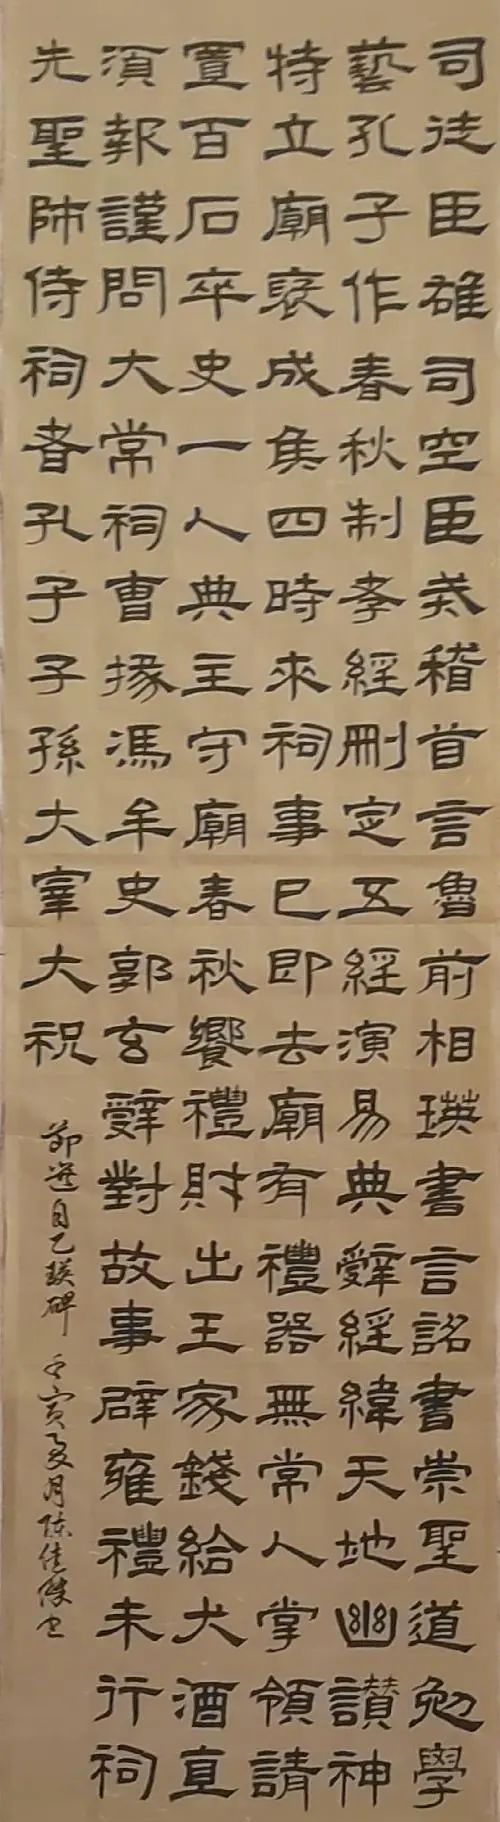 司徒臣雄司空臣戒稽首言魯前相瑛書言詔書崇聖道勉學
藝孔子作春秋制孝經刪定五經演易典辭經緯天地幽讚神
特立廟褒成侯四時來祠事已即去廟有禮器無常人掌領請
置百石卒史一人典主守廟春秋饗禮財出王家錢給犬酒直
須報謹問大常祠曹掾馮牟史郭玄辭對故事辟雍禮未行祠
先聖師侍祠者孔子子孫大宰大祝
節選自乙瑛碑 壬寅夏月陈佳书